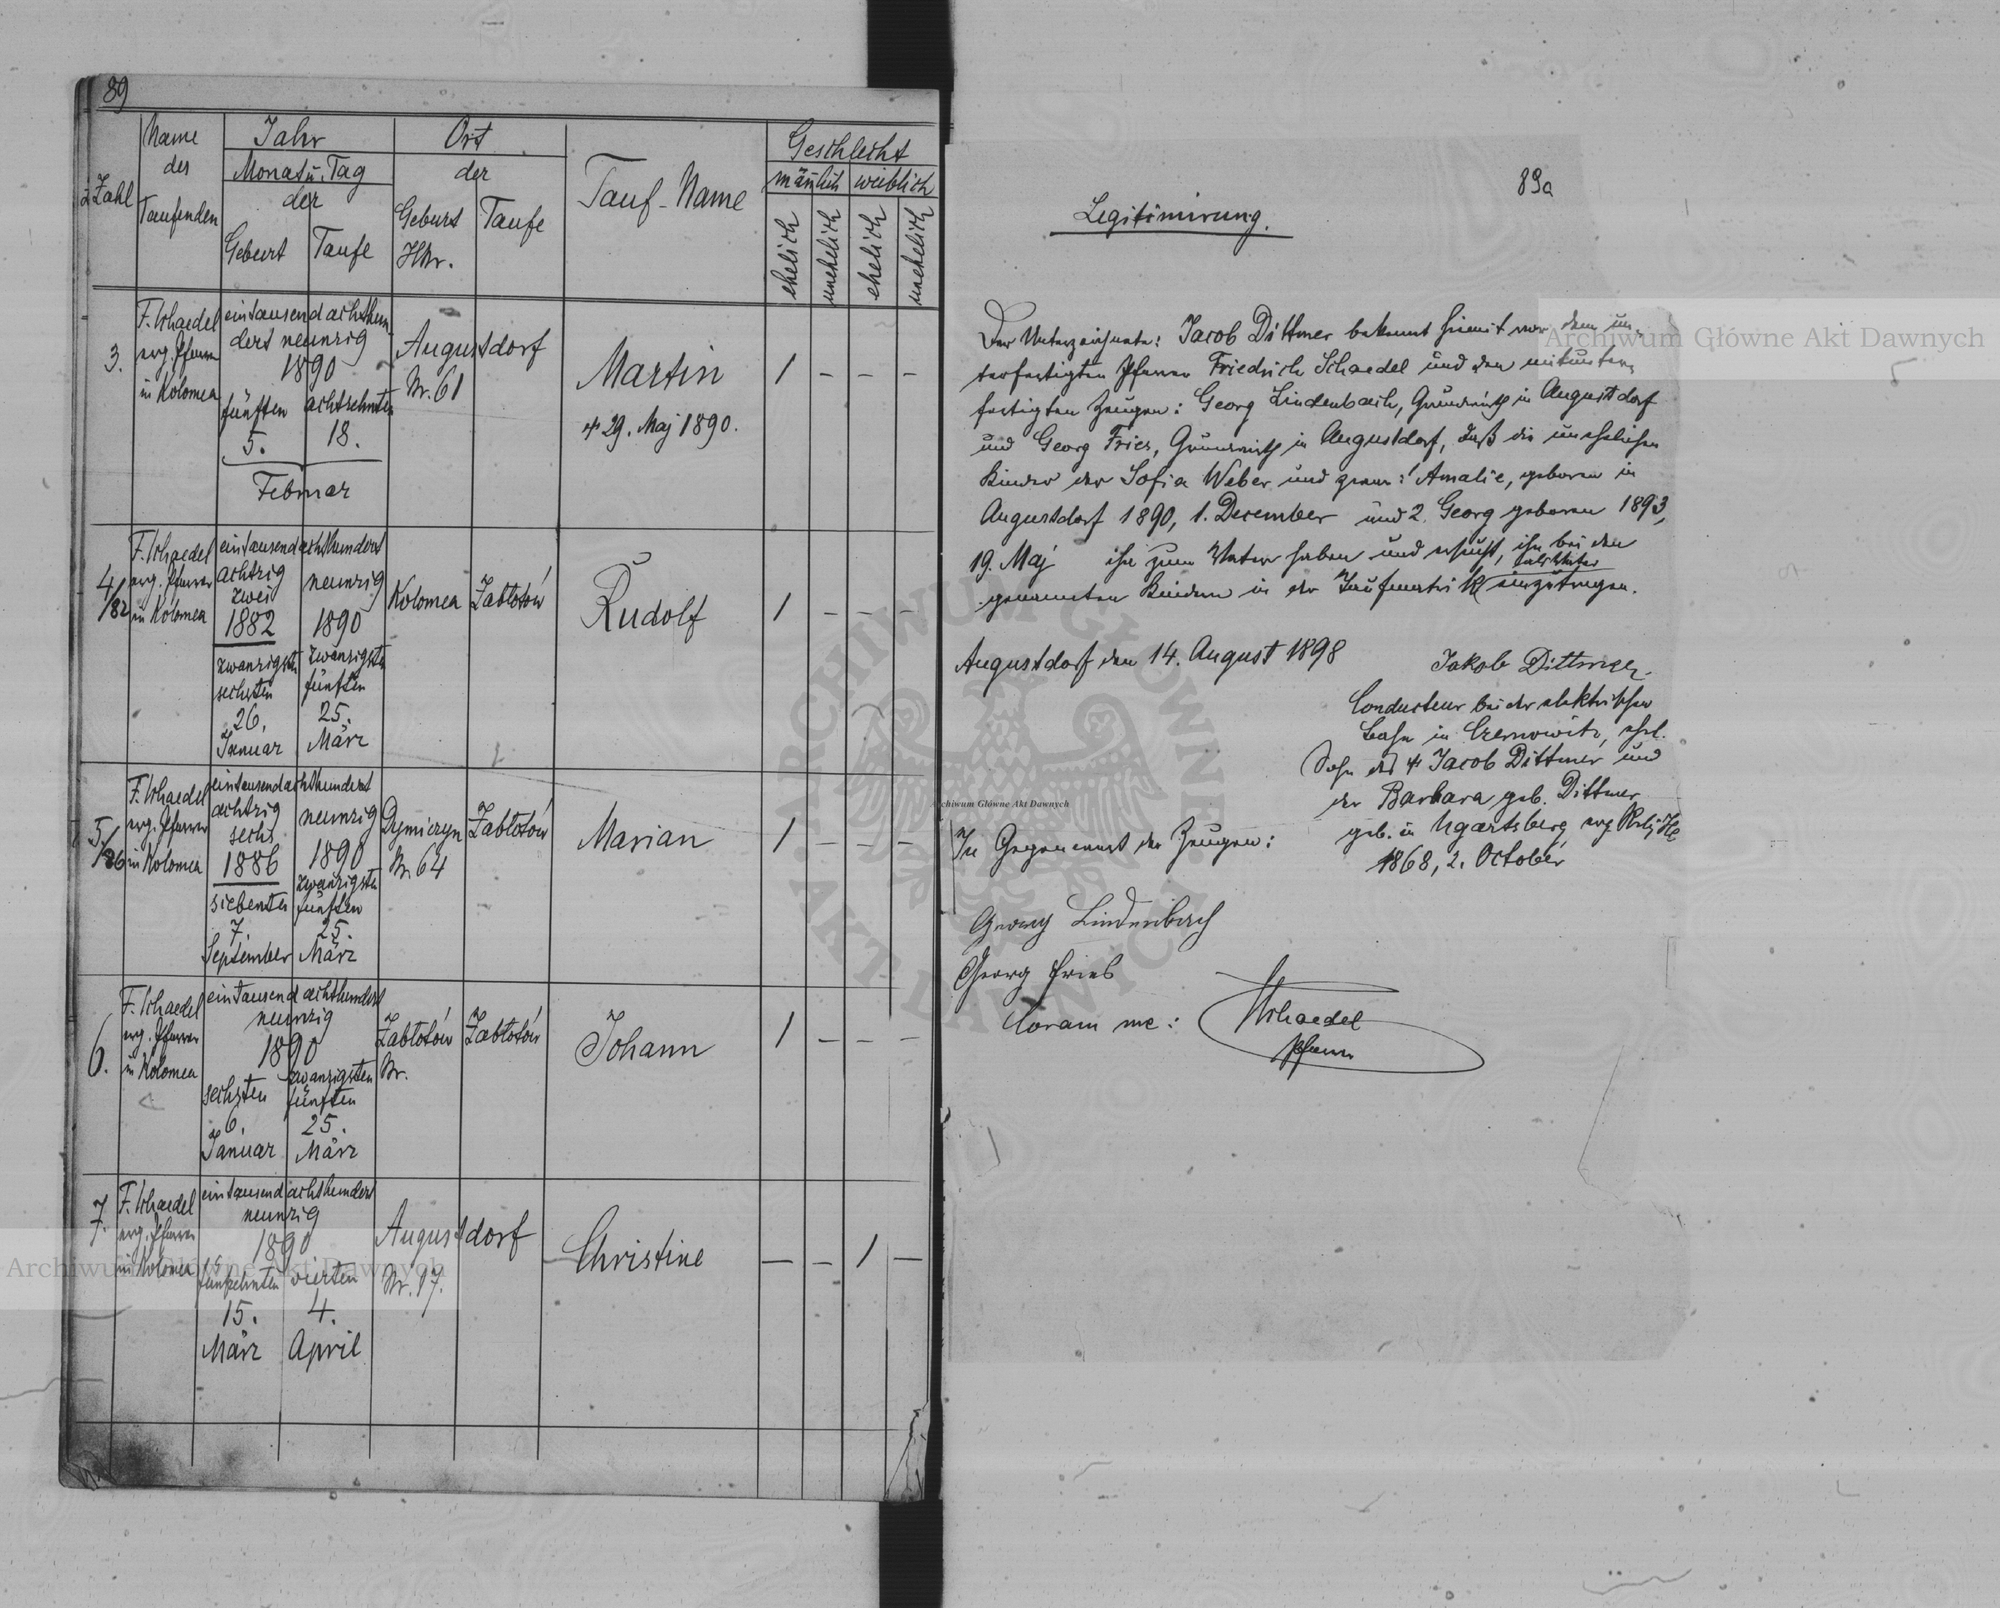 89
Zahl
Name
der
Taufenden
Jahr
Monat u. Tag
der
Geburt
Taufe
Ort
der
Geburt
HNr.
Taufe
Tauf-Name
Geschlecht
mänlich
weiblich
ehelich
unehelich
ehelich
unehelich
3.
F. Schaedel
evg. Pfarrer
in Kolomea
eintausend achthun
dert neunzig
1890
fünften
achtzehnten
5.
18.
Februar
Augustdorf
Nr. 61
Martin
29. Maj 1890.
1 – – –
4/82
F. Schaedel
evg. Pfarrer
in Kolomea
eintausend achthundert
achtzig
zwei
1882
zwanzigsten
sechsten
26.
Januar
neunzig
1890
zwanzigsten
fünften
25.
März
Kolomea
Zabłotów
Rudolf
1 – – –
5/86
F. Schaedel
evg. Pfarrer
in Kolomea
eintausend achthundert
achtzig
sechs
1886
siebenten
7.
September
neunzig
1890
zwanzigsten
fünften
25.
März
Dzmiczyn
Nr. 64
Zabłotów
Marian
1 – – –
6.
F. Schaedel
evg. Pfarrer
in Kolomea
eintausend achthundert
neunzig
1890
sechsten
6.
Januar
zwanzigsten
fünften
25.
März
Zabłotów
Nr.
Zabłotów
Johann
1 – – –
7.
F. Schaedel
evg. Pfarrer
in Kolomea
eintausend achthundert
neunzig
1890
15.
März
vierten
4.
April
Augustdorf
Nr. 97.
Christine
– – 1 –
89a
Legitimirung.
Der Unterzeichnete: Jacob Dittmer bekennt hiemit vor dem un-
terfertigten Pfarrer Friedrich Schaedel und den mitunter-
fertigten Zeugen: Georg Lindenbach, Grundwirth in Augustdorf
und Georg Fries, Grundwirth in Augustdorf, daß die unehelichen
Kinder der Sofia Weber und zwar: 1 Amalie, geboren in
Augustdorf 1890, 1. December und 2. Georg geboren 1893,
19. Maj ihn zum Vater haben und ersucht, ihn bei den
genannten Kindern in der Taufmatrik als Vater einzutragen.
Augustdorf den 14. August 1898
Jakob Dittmer
Conducteur bei der elektrischen
Bahn in Czernowitz, ehel.
Sohn des Jacob Dittmer und
der Barbara geb. Dittmer
geb. in Ugartsberg, evg
1868, 2. October
In Gegenwart der Zeugen:
Georg Lindenbach
Georg Fries
Coram me:
FSchaedel
Pfarrer
Archiwum Główne Akt Dawnych
Archiwum Główne Akt Dawnych
Archiwum Główne Akt Dawnych
ARCHIWUM GŁÓWNE AKT DAWNYCH